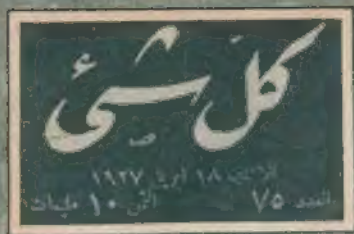 كل شئ
الاثنين ١٨ ابريل ١٩٢٧
العدد ٧٥ الثمن ١٠ مليمات